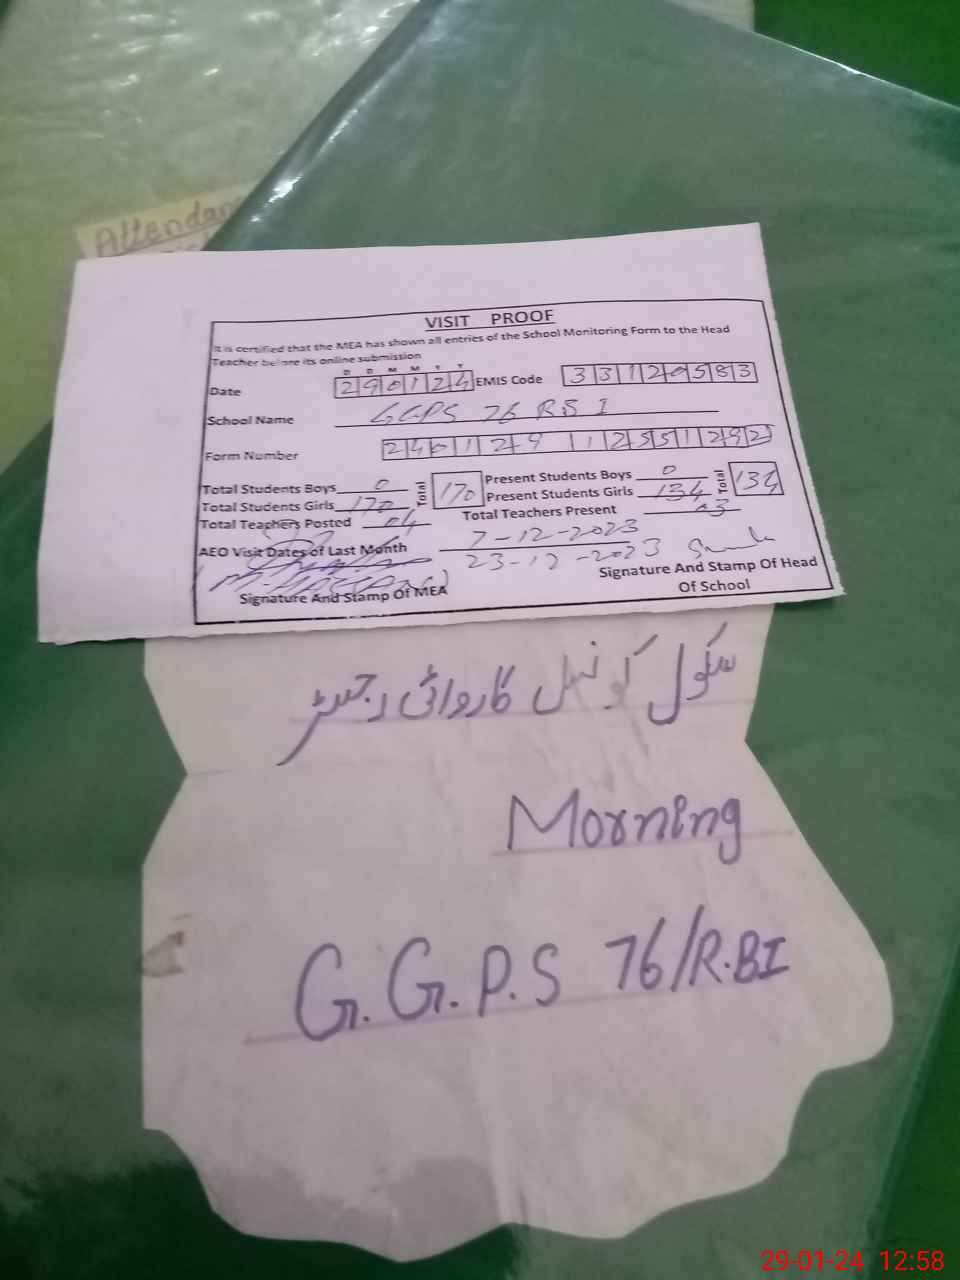 Attendan
VISIT PROOF
It is certified that the MEA has shown all entries of the School Monitoring Form to the Head
Teacher before its online submission
D D M M Y Y
Date 290124 EMIS Code 33120583
School Name GGPS 76 RB I
Form Number 240129112551292
Total Students Boys 0 Total 170 Present Students Boys 0 Total 134
Total Students Girls 170 Present Students Girls 134
Total Teachers Posted 04 Total Teachers Present 03
AEO Visit Dates of Last Month 7-12-2023
23-12-2023
Signature And Stamp Of MEA Signature And Stamp Of Head
Of School
سکول کونسل کاروائی رجسٹر
Morning
G.G.P.S 76/R.BI
29-01-24 12:58